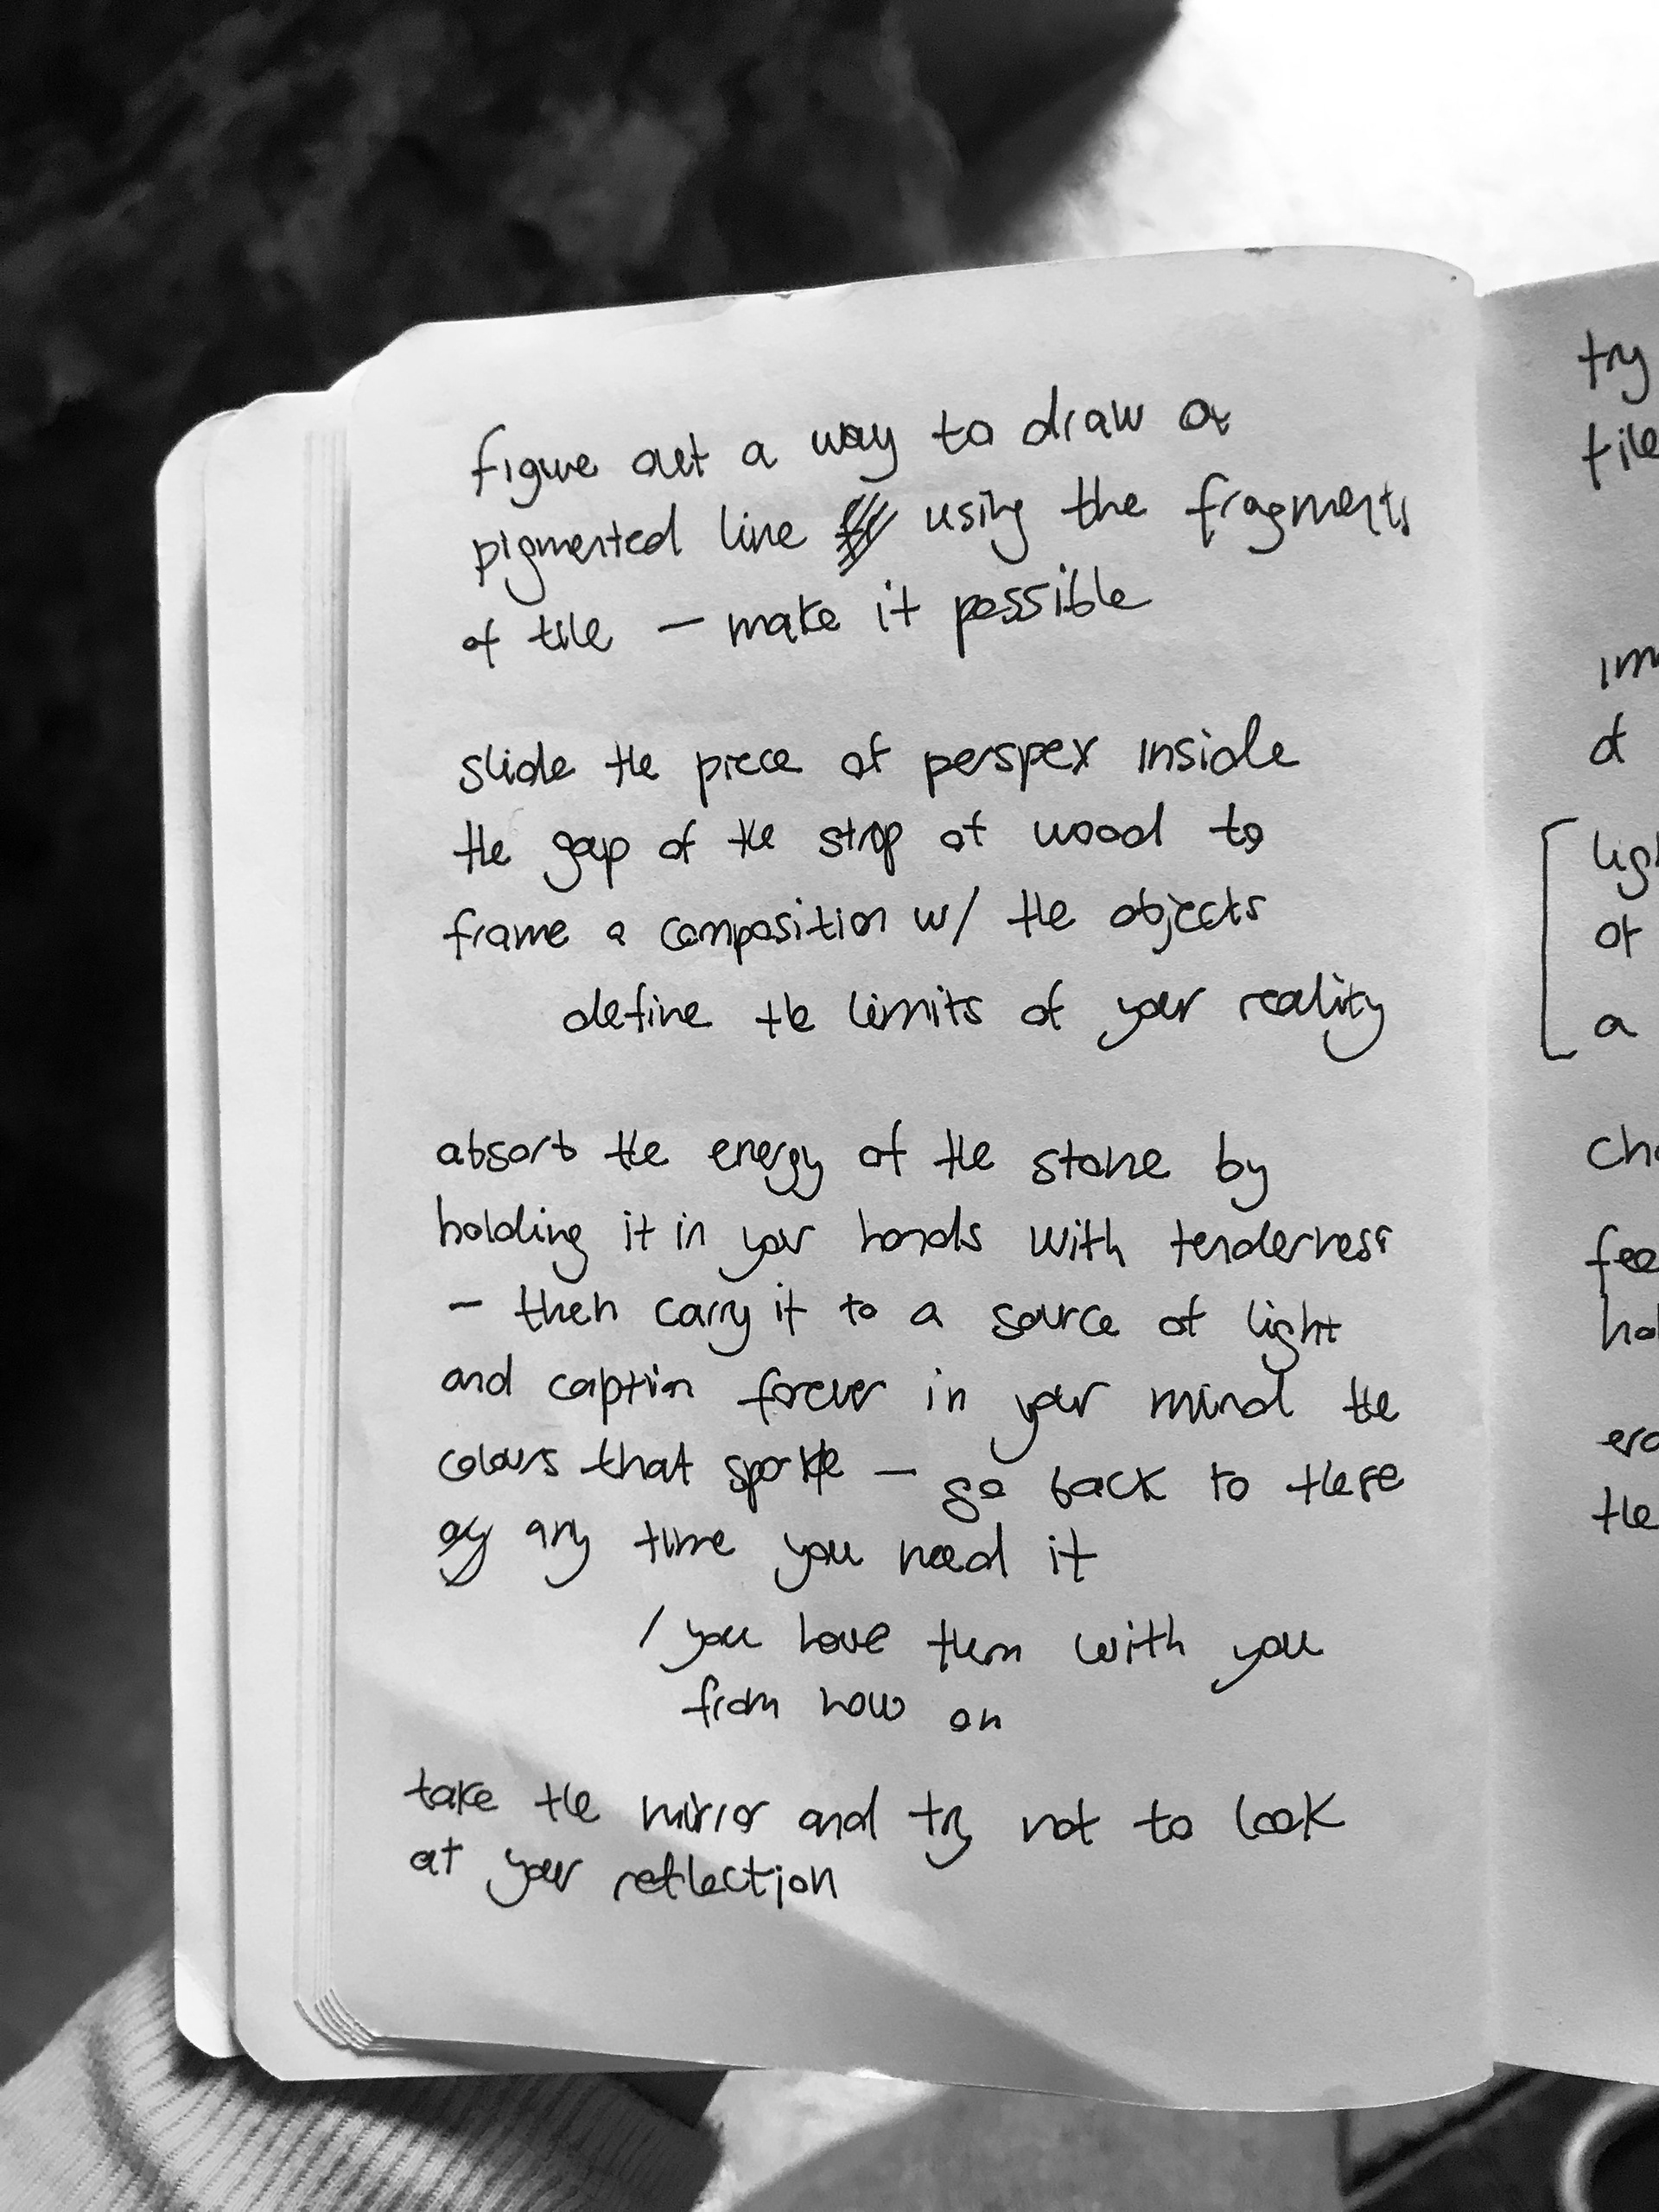 figure out a way to draw a
pigmented line using the fragments
of tile — make it possible
slide the piece of perspex inside
the gap of the strip of wood to
frame a composition w/ the objects
define the limits of your reality
absorb the energy of the stone by
holding it in your hands with tenderness
– then carry it to a source of light
and caption forever in your mind the
colours that sparkle — go back to these
any time you need it
/ you have them with you
from now on
take the mirror and try not to look
at your reflection
try
tile
of
of
a
the